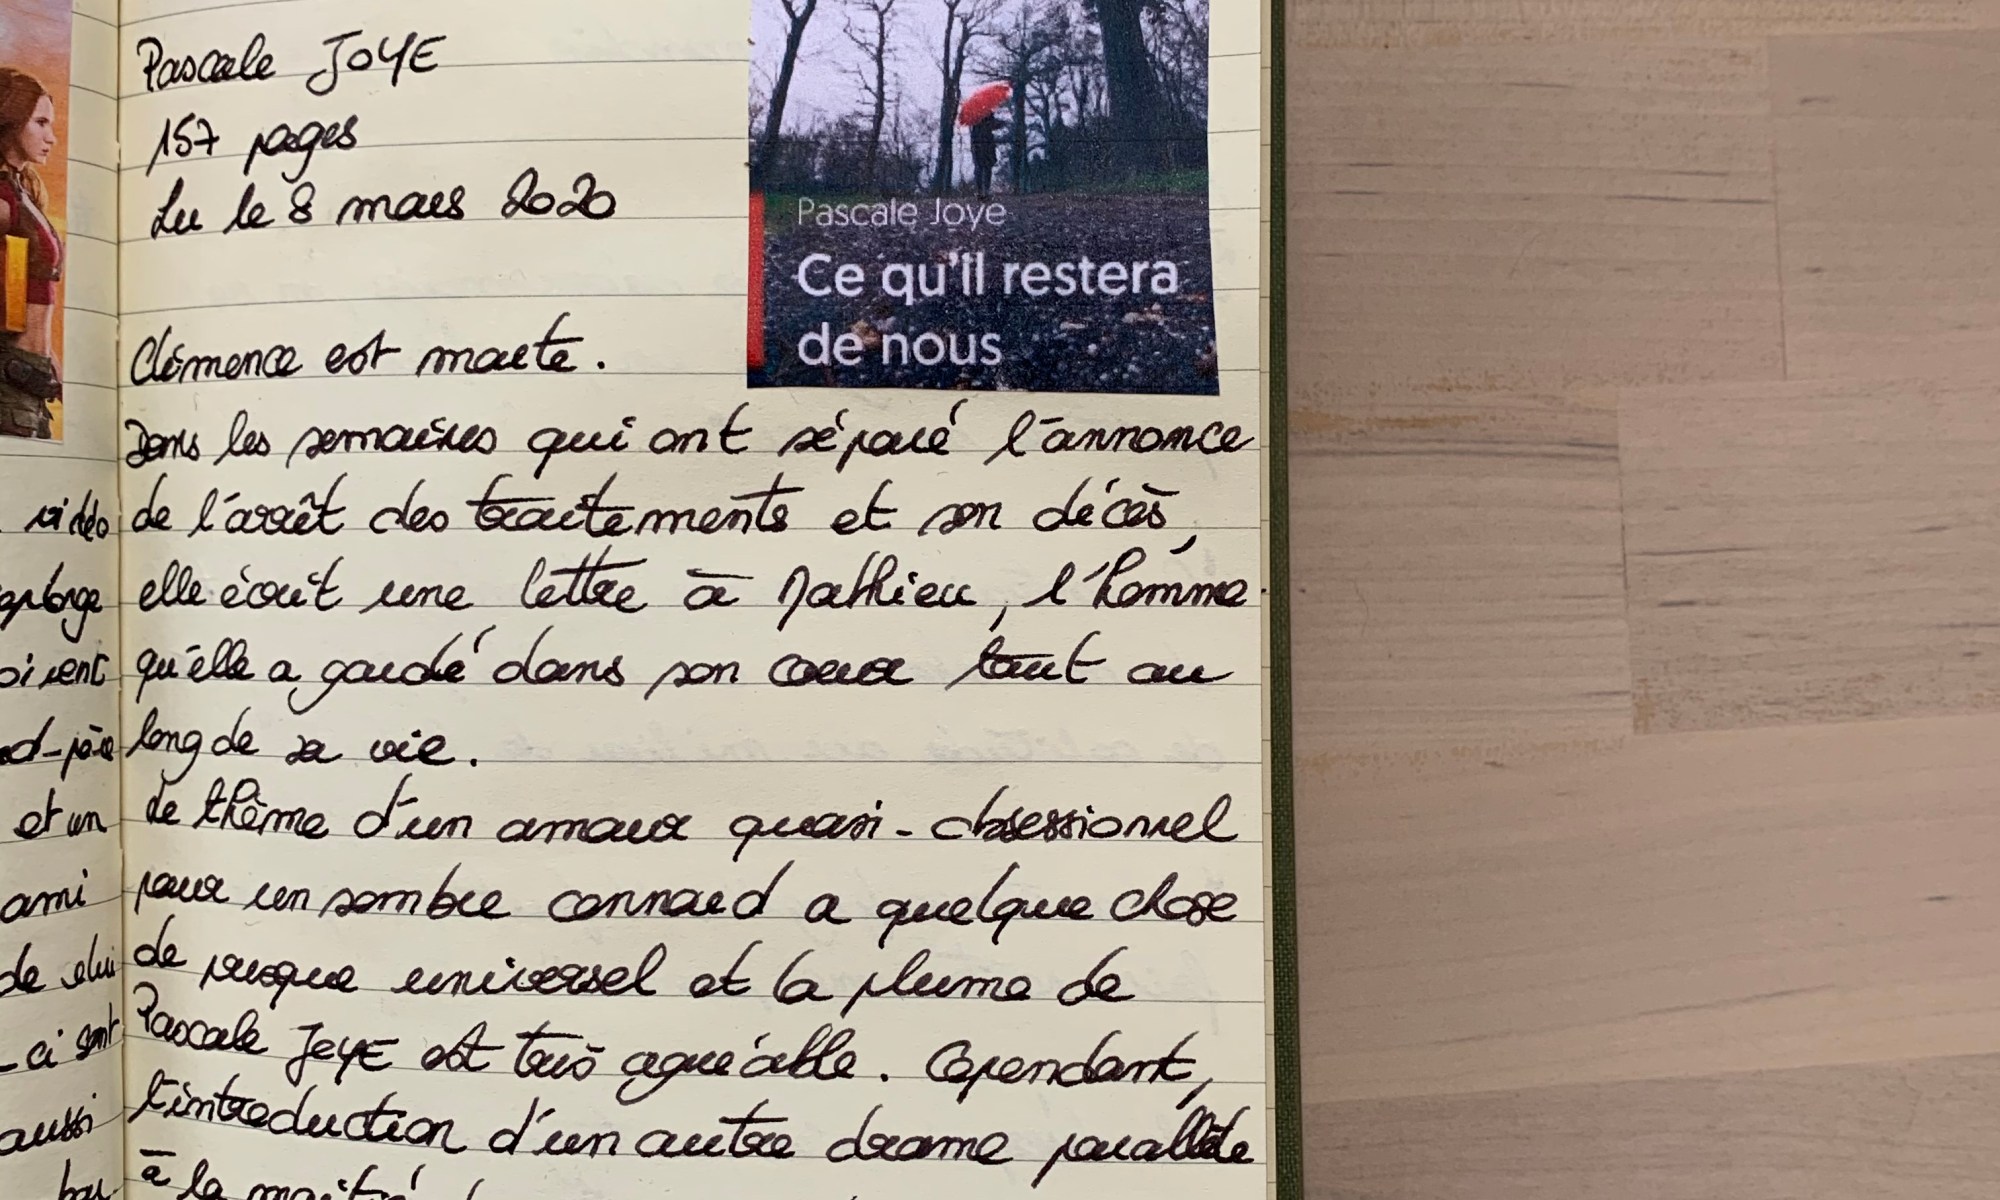 Pascale JOYE
157 pages
Lu le 8 mars 2020
Pascale Joye
Ce qu'il restera
de nous
Clémence est morte.
Dans les semaines qui ont séparé l'annonce
de l'arrêt des traitements et son décès,
elle écrit une lettre à Mathieu, l'homme
qu'elle a gardé dans son coeur tout au
long de sa vie.
Le thème d'un amour quasi-obsessionnel
pour un sombre connard a quelque chose
de presque universel et la plume de
Pascale JOYE est très agréable. Cependant,
l'introduction d'un autre drame parallèle
à la moitié
vidéo
oivent
et un
ami
-ci sont
aussi